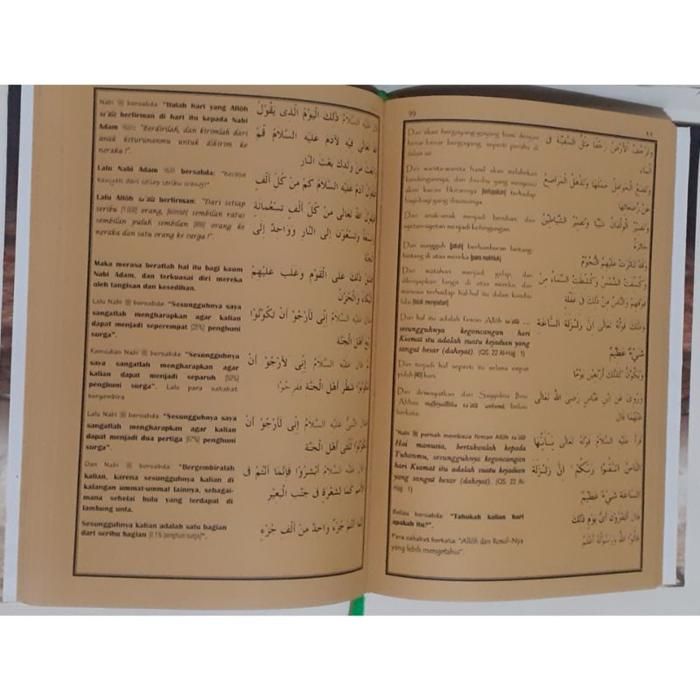 99
Dan akan bergoyang-goyang bumi dengan
benar-benar bergoyang seperti perahu di
dalam air
Dan wanita-wanita hamil akan melahirkan
kandungannya, dan ibu-ibu yang menyusui
akan kacau fikirannya terhadap
bayi-bayi yang disusuinya
Dan anak-anak menjadi beruban dan
syetan-syetan menjadi kebingungan
Dan sungguh [jatuh] berhamburan bintang
bintang di atas mereka
Dan matahari menjadi gelap, dan
dilenyapkan langit di atas mereka dan
manusia terhadap hal-hal itu dalam kondisi
lalai
Dan hal itu adalah firman Allôh
sesungguhnya kegoncangan hari
Kiamat itu adalah suatu kejadian yang
sangat besar (dahsyat). (QS. 22 Al-Hajj : 1)
Dan terjadi hal seperti itu selama empat
puluh [40] hari
Dan diriwayatkan dari Sayyidina Ibnu
Abbas
berkata:
"Nabi ﷺ pernah membaca firman Allôh
Hai manusia, bertakwalah kepada
Tuhanmu, sesungguhnya kegoncangan
hari Kiamat itu adalah suatu kejadian
yang sangat besar (dahsyat). (QS. 22 Al-
Hajj : 1)
Beliau bersabda: "Tahukah kalian hari
apakah itu?".
Para sahabat berkata: "Allôh dan Rosul-Nya
yang lebih mengetahui".
٩٩
الْمَاءِ
وَتَضَعُ الْحَوَامِلُ حَمْلَهَا وَتَذْهَلُ الْمَرَاضِعُ
عَنْ رَضَائِعِهَا
وَتَصِيْرُ الْوِلْدَانُ شَيْبًا وَتَصِيْرُ الشَّيَاطِيْنُ
حَائِرَةً
وَقَدْ تَنَاثَرَتْ عَلَيْهِمُ النُّجُوْمُ
وَكُسِفَتِ الشَّمْسُ وَكُشِطَتِ السَّمَاءُ مِنْ
فَوْقِهِمْ وَالنَّاسُ مِنْ ذٰلِكَ فِى غَفْلَةٍ
وَذٰلِكَ قَوْلُهُ تَعَالَى اِنَّ زَلْزَلَةَ السَّاعَةِ
شَيْءٌ عَظِيْمٌ
وَيَكُوْنُ كَذٰلِكَ اَرْبَعِيْنَ يَوْمًا
وَرُوِىَ عَنِ ابْنِ عَبَّاسٍ رَضِىَ اللهُ تَعَالَى
عَنْهُمَا قَالَ
قَرَأَ عَلَيْهِ السَّلَامُ قَوْلَهُ تَعَالَى يٰٓاَيُّهَا
النَّاسُ اتَّقُوْا رَبَّكُمْ اِنَّ زَلْزَلَةَ
السَّاعَةِ شَيْءٌ عَظِيْمٌ
قَالَ اَتَدْرُوْنَ اَيُّ يَوْمٍ ذٰلِكَ
قَالُوْا اللهُ وَرَسُوْلُهُ اَعْلَمُ
Nabi ﷺ bersabda: "Itulah hari yang Allôh
berfirman di hari itu kepada Nabi
Adam : "Berdirilah, dan kirimlah dari
anak keturunanmu untuk dikirim ke
neraka !".
Lalu Nabi Adam bersabda: "Berapa
banyak dari setiap seribu orang?"
Lalu Allôh berfirman: "Dari setiap
seribu [1000] orang, jumlah sembilan ratus
sembilan puluh sembilan [999] orang ke
neraka dan satu orang ke surga !".
Maka merasa beratlah hal itu bagi kaum
Nabi Adam, dan terkuasai diri mereka
oleh tangisan dan kesedihan.
Lalu Nabi ﷺ bersabda: "Sesungguhnya saya
sangatlah mengharapkan agar kalian
dapat menjadi seperempat [25%] penghuni
surga".
Kemudian Nabi ﷺ bersabda: "Sesungguhnya
saya sangatlah mengharapkan agar
kalian dapat menjadi separuh [50%]
penghuni surga". Lalu para sahabat
bergembira
Lalu Nabi ﷺ bersabda: "Sesungguhnya saya
sangatlah mengharapkan agar kalian
dapat menjadi dua pertiga [67%] penghuni
surga".
Dan Nabi ﷺ bersabda: "Bergembiralah
kalian, karena sesungguhnya kalian di
kalangan ummat-ummat lainnya, sebagai-
mana sebelai bulu yang terdapat di
lambung unta.
Sesungguhnya kalian adalah satu bagian
dari seribu bagian [0.1% penghuni surga]".
قَالَ عَلَيْهِ السَّلَامُ ذٰلِكَ الْيَوْمُ الَّذِى يَقُوْلُ
اللهُ تَعَالَى فِيْهِ لِآدَمَ عَلَيْهِ السَّلَامُ قُمْ
فَابْعَثْ مِنْ وَلَدِكَ بَعْثَ النَّارِ
فَيَقُوْلُ آدَمُ عَلَيْهِ السَّلَامُ كَمْ مِنْ كُلِّ اَلْفٍ
فَيَقُوْلُ اللهُ تَعَالَى مِنْ كُلِّ اَلْفٍ تِسْعُمِائَةٍ
وَتِسْعَةٌ وَتِسْعُوْنَ اِلَى النَّارِ وَوَاحِدٌ اِلَى
ذٰلِكَ عَلَى الْقَوْمِ وَغَلَبَ عَلَيْهِمُ
الْبُكَاءُ وَالْحُزْنُ
قَالَ عَلَيْهِ السَّلَامُ اِنِّى لَاَرْجُوْ اَنْ تَكُوْنُوْا
رُبُعَ اَهْلِ الْجَنَّةِ
قَالَ عَلَيْهِ السَّلَامُ اِنِّى لَاَرْجُوْ اَنْ
تَكُوْنُوْا شَطْرَ اَهْلِ الْجَنَّةِ فَفَرِحُوْا
قَالَ النَّبِىُّ عَلَيْهِ السَّلَامُ اِنِّى لَاَرْجُوْ اَنْ
تَكُوْنُوْا ثُلُثَىْ اَهْلِ الْجَنَّةِ
قَالَ عَلَيْهِ السَّلَامُ اَبْشِرُوْا فَاِنَّمَا اَنْتُمْ فِى
الْاُمَمِ كَمَا لِشَعْرَةٍ فِى جَنْبِ الْبَعِيْرِ
اِنَّمَا اَنْتُمْ جُزْءٌ وَاحِدٌ مِنْ اَلْفِ جُزْءٍ